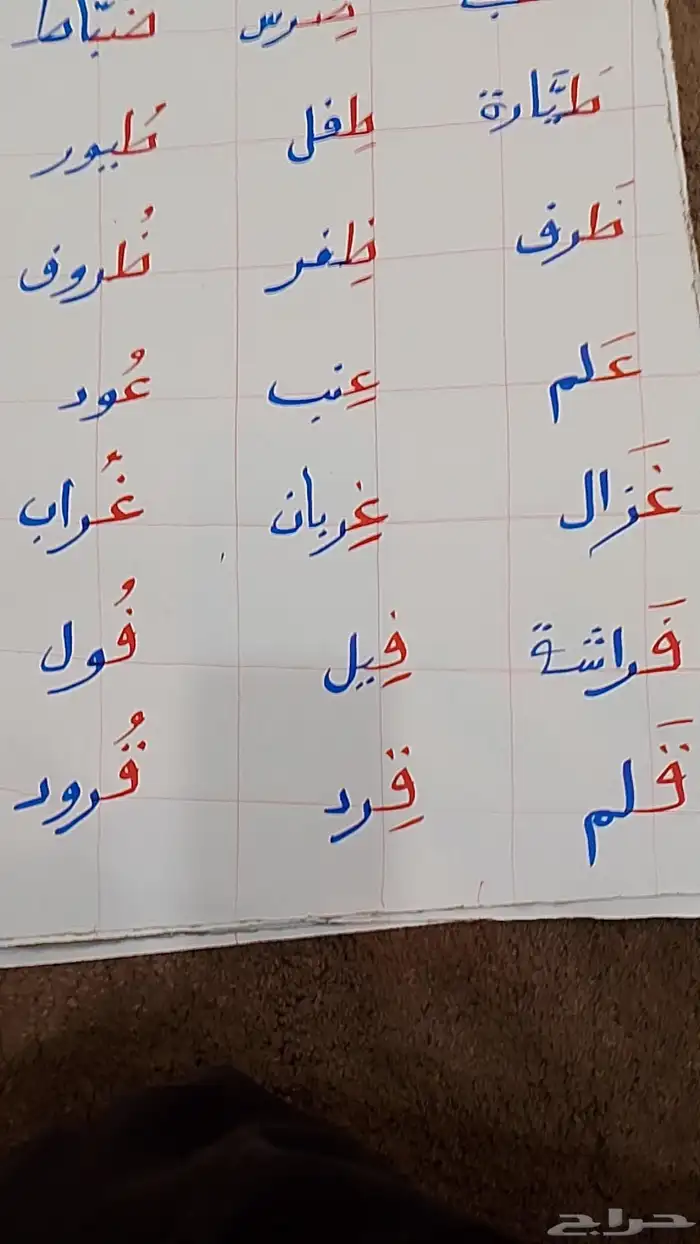 ضِرس ضبّاط
طَيَّارة طِفل طُيور
ظَرف ظِفر ظُروف
عَلم عِنب عُود
غَزال غِربان غُراب
فَراشة فِيل فُول
قَلم قِرد قُرود
حراج